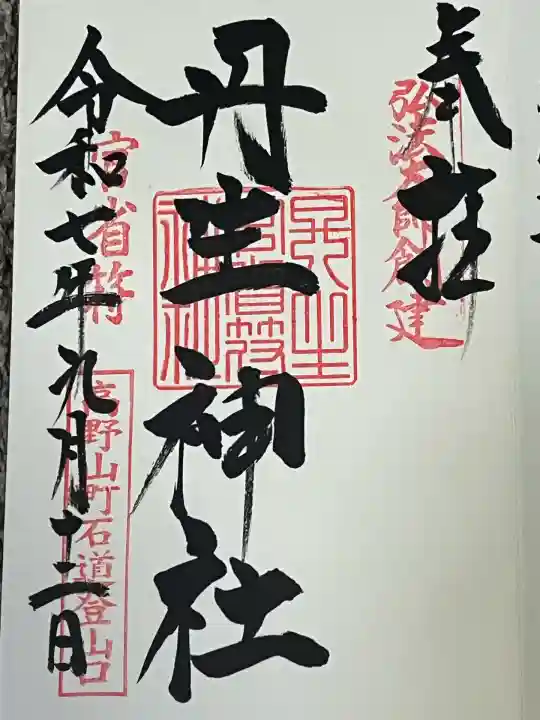 奉拝
弘法大師創建
丹生神社
高野山
丹生
官省符
神社
令和七年九月十三日
官省符
高野山町石道登山口